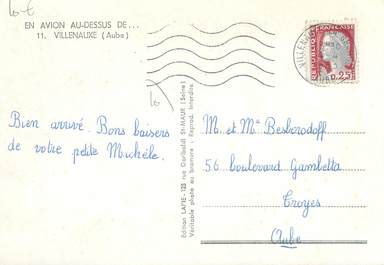 EN AVION AU-DESSUS DE...
11. VILLENAUXE (Aube)
RÉPUBLIQUE FRANÇAISE
0,25
Bien arrivé. Bons baisers
de votre petite Michèle.
Edition LAPIE - 125 rue Garibaldi ST-MAUR (Seine)
Véritable photo au bromure - Reprod. interdite
M. et Me Besborodoff
56 boulevard Gambetta
Troyes
Aube